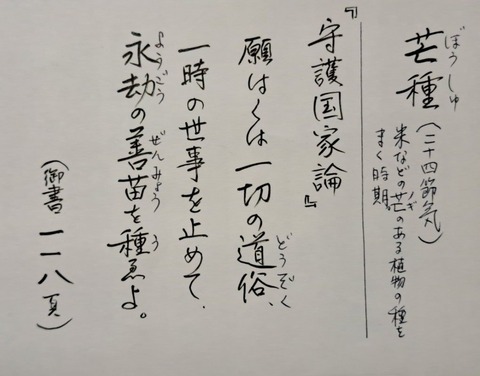 ぼうしゅ
芒種(二十四節気)
ノギ
米などの芒のある植物の種を
まく時期
『守護国家論』
どうぞく
願はくは一切の道俗、
一時の世事を止めて、
ようごう ぜんみょう う
永劫の善苗を種ゑよ。
(御書 一一八頁)